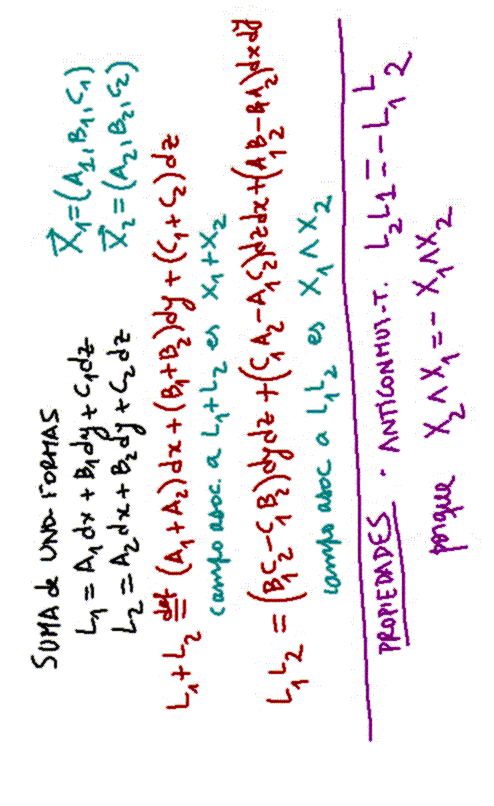 SUMA de UNO-FORMAS
L₁ = A₁dx + B₁dy + C₁dz
X⃗₁ = (A₁, B₁, C₁)
L₂ = A₂dx + B₂dy + C₂dz
X⃗₂ = (A₂, B₂, C₂)
L₁+L₂ =def (A₁+A₂)dx + (B₁+B₂)dy + (C₁+C₂)dz
campo asoc. a L₁+L₂ es X₁+X₂
L₁L₂ = (B₁C₂-C₁B₂)dydz + (C₁A₂-A₁C₂)dzdx + (A₁B₂-B₁A₂)dxdy
campo asoc a L₁L₂ es X₁∧X₂
PROPIEDADES · ANTICONMUT-T. L₂L₁ = -L₁L₂
porque X₂∧X₁ = - X₁∧X₂